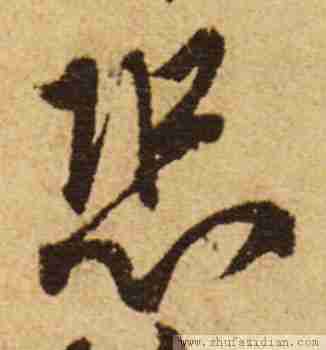 恐
www.shufazidian.com